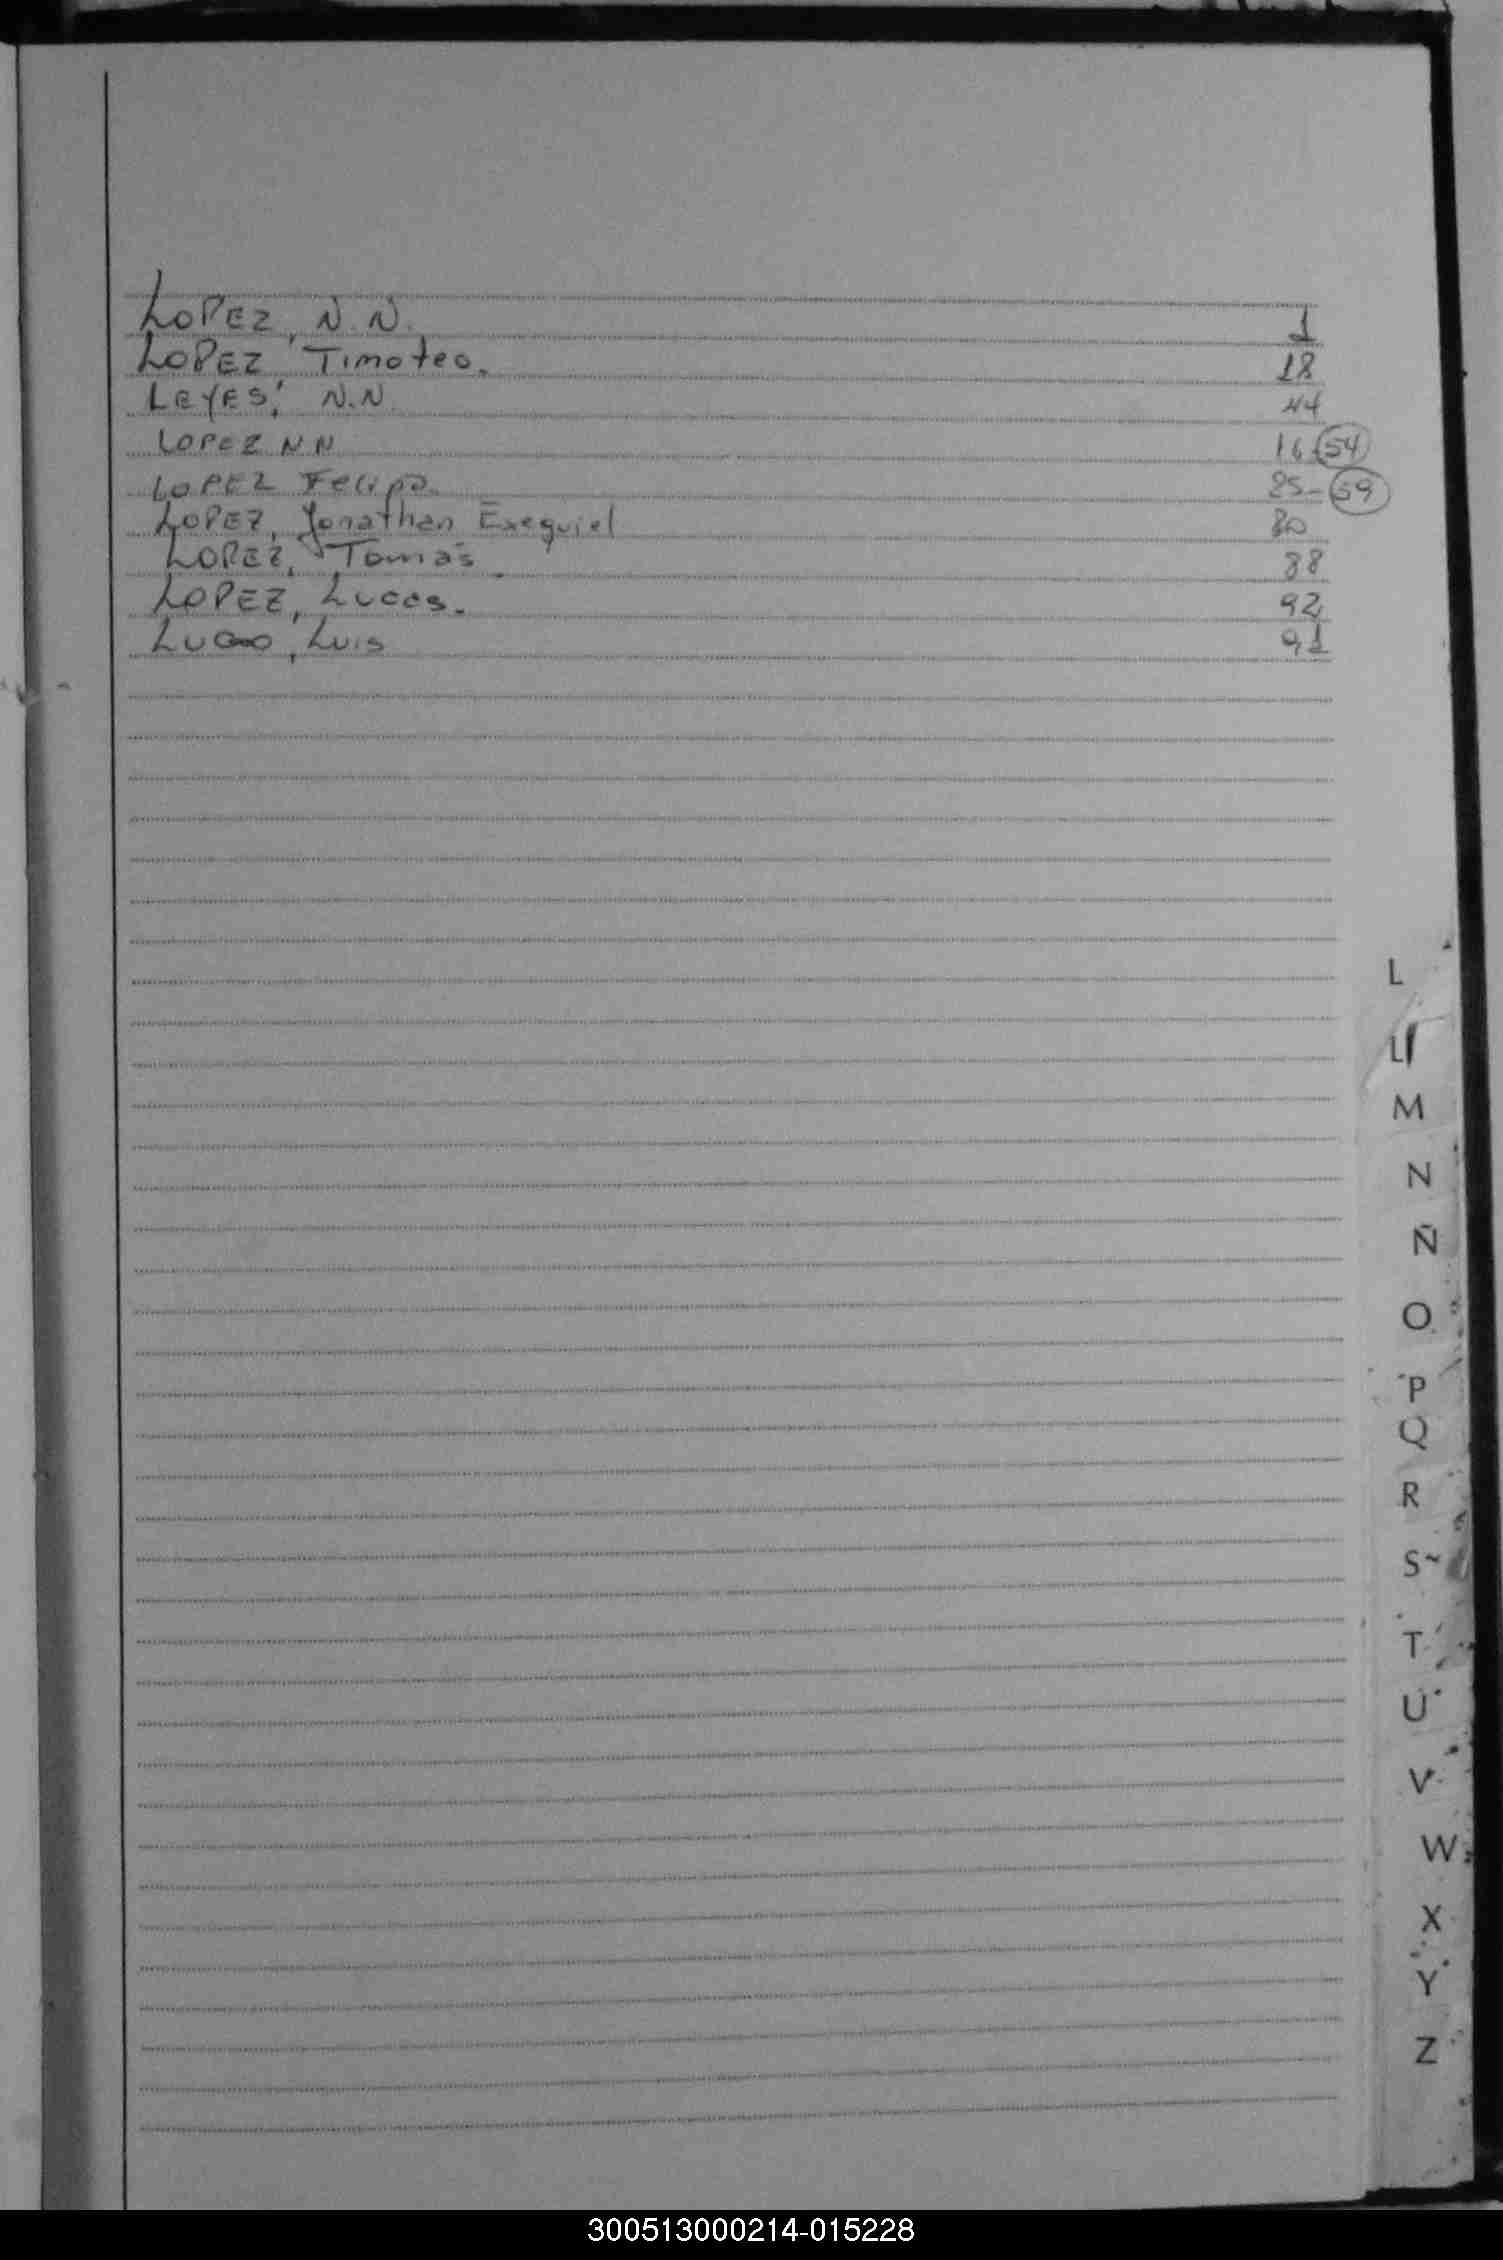 LOPEZ, N.N. 1
LOPEZ, Timoteo. 18
LEYES, N.N. 44
LOPEZ N N 16-(54)
LOPEZ Felipa. 85-(59)
LOPEZ, Jonathan Exequiel 80
LOPEZ, Tomás. 88
LOPEZ, Lucas. 92
Luis 91
L
Ll
M
N
Ñ
O
P
Q
R
S
T
U
V
W
X
Y
Z
300513000214-015228